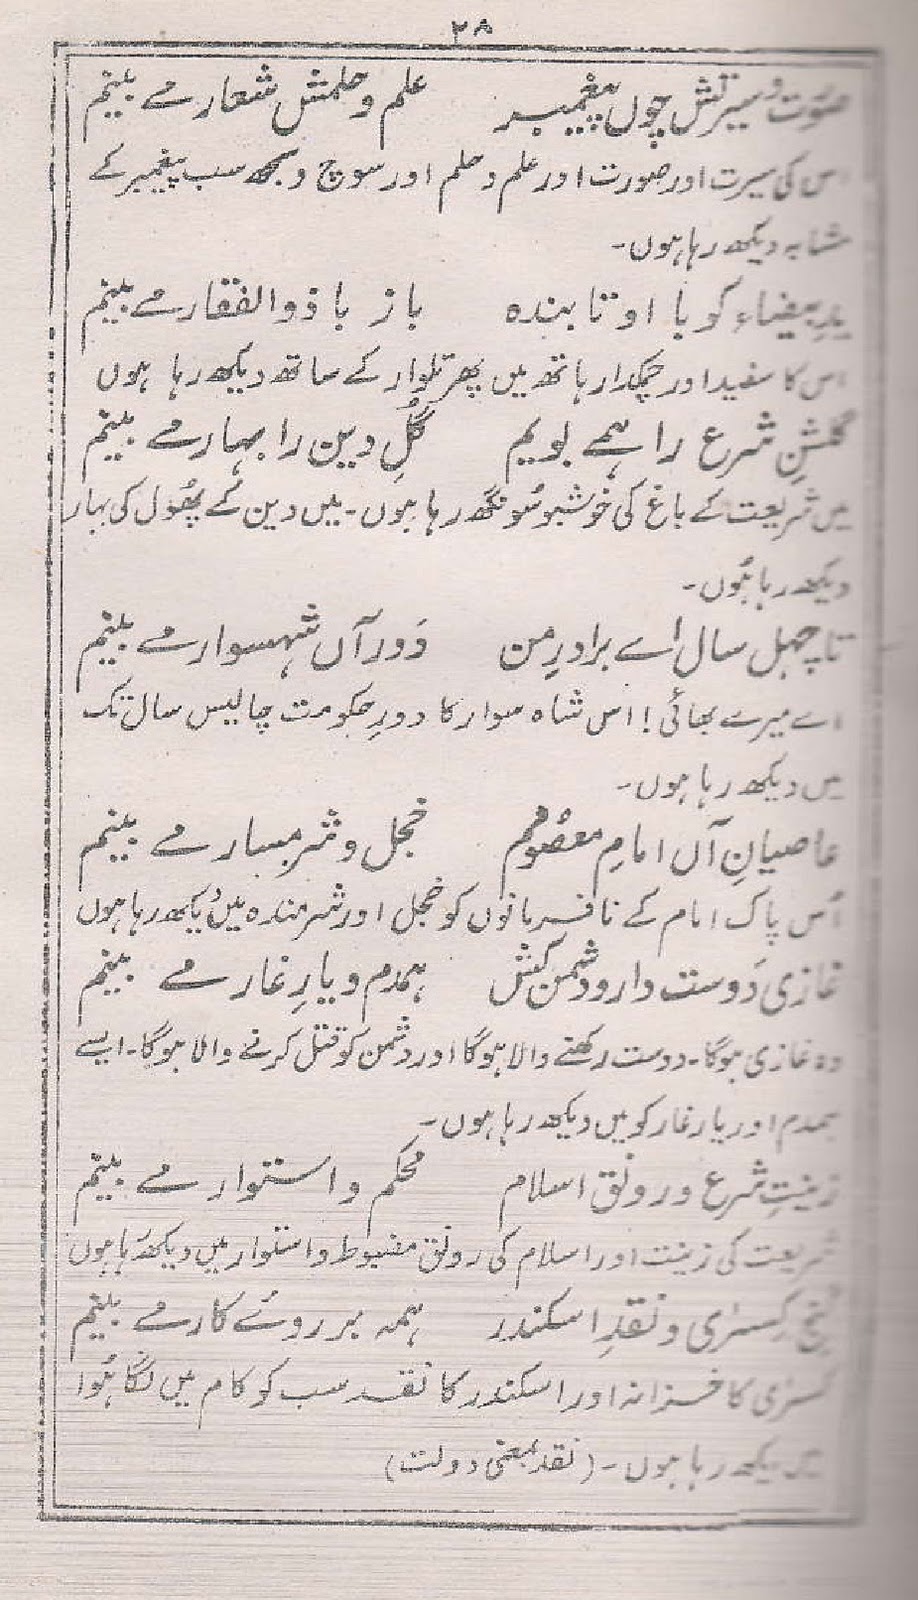 ۲۸
صورت و سیرتش چوں پیغمبر علم و حلمش شعار مے بینم
اس کی سیرت اور صورت اور علم و حلم اور سوچ و بچھ سب پیغمبر کے
مشابہ دیکھ رہا ہوں۔
یدِ بیضاء کو با او تابندہ باز با ذوالفقار مے بینم
اس کا سفید اور چمکدار ہاتھ میں پھر تلوار کے ساتھ دیکھ رہا ہوں
گلشنِ شرع را ہمے بویم گُلِ دین را بہار مے بینم
میں شریعت کے باغ کی خوشبو سُونگھ رہا ہوں۔ میں دین کے پھُول کی بہار
دیکھ رہا ہُوں۔
تا چہل سال اے برادرِ من دَور آں شہسوار مے بینم
اے میرے بھائی! اس شاہ سوار کا دورِ حکومت چالیس سال تک
میں دیکھ رہا ہوں۔
عاصیانِ آں امامِ معصُوم خجل و شرمسار مے بینم
اُس پاک امام کے نافرمانوں کو خجل اور شرمندہ میں دیکھ رہا ہوں
غازی دَوست دار و دشمن کُش ہمدم و یارِ غار مے بینم
وہ غازی ہوگا۔ دوست رکھنے والا ہوگا اور دشمن کو قتل کرنے والا ہوگا۔ ایسے
ہمدم اور یارِ غار کو میں دیکھ رہا ہوں۔
زینتِ شرع و رونق اسلام محکم و استوار مے بینم
شریعت کی زینت اور اسلام کی رونق مضبوط و استوار میں دیکھ رہا ہوں
گنجِ کسرٰی و نقدِ اسکندر ہمہ بر روئے کار مے بینم
کسرٰی کا خزانہ اور اسکندر کا نقد سب کو کام میں لگا ہُوا
میں دیکھ رہا ہوں۔ (نقد بمعنی دولت)